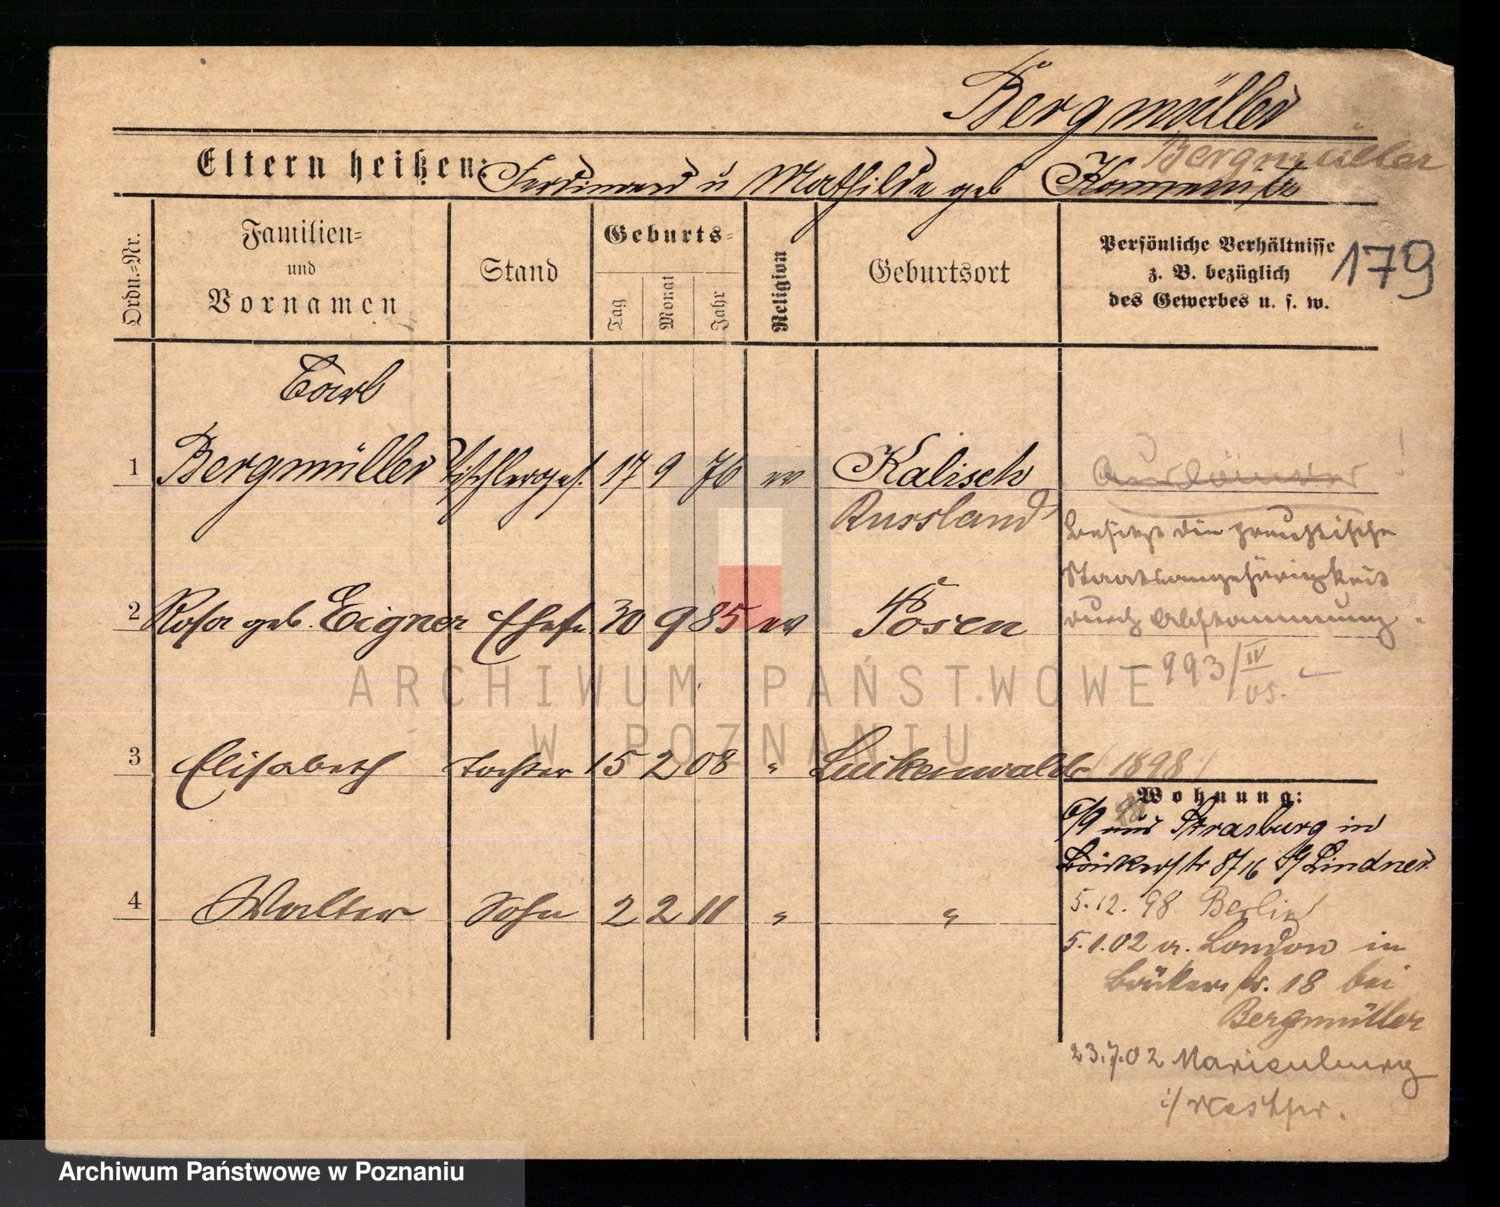 Bergmüller
Bergmüller
Eltern heißen: Ferdinand u Mathilde geb
179
Ordn.-Nr.
Familien- und Vornamen
Stand
Geburts-
Tag
Monat
Jahr
Religion
Geburtsort
Persönliche Verhältnisse
z. B. bezüglich
des Gewerbes u. s. w.
Carl
1 Bergmüller Tischlerges. 17 9 76 ev Kalisch
Russland
Ausländer !
Besitzt die preußische
Staatsangehörigkeit
durch Abstammung.
993/IV 05.
2 Rosa geb. Eigner Ehefr. 30 9 85 ev Posen
3 Elisabeth Tochter 15 2 08 " Luckenwalde
1898
Wohnung:
6/9 aus Strasburg in
Bäckerstr 8716 Lindner
4 Walter Sohn 2 2 11 " "
5.12.98 Berlin
5.1.02 a. London in
Bäckerstr. 18 bei
Bergmüller
23.7.02 Marienburg
i/ Westpr.
ARCHIWUM PAŃSTWOWE
W POZNANIU
Archiwum Państwowe w Poznaniu